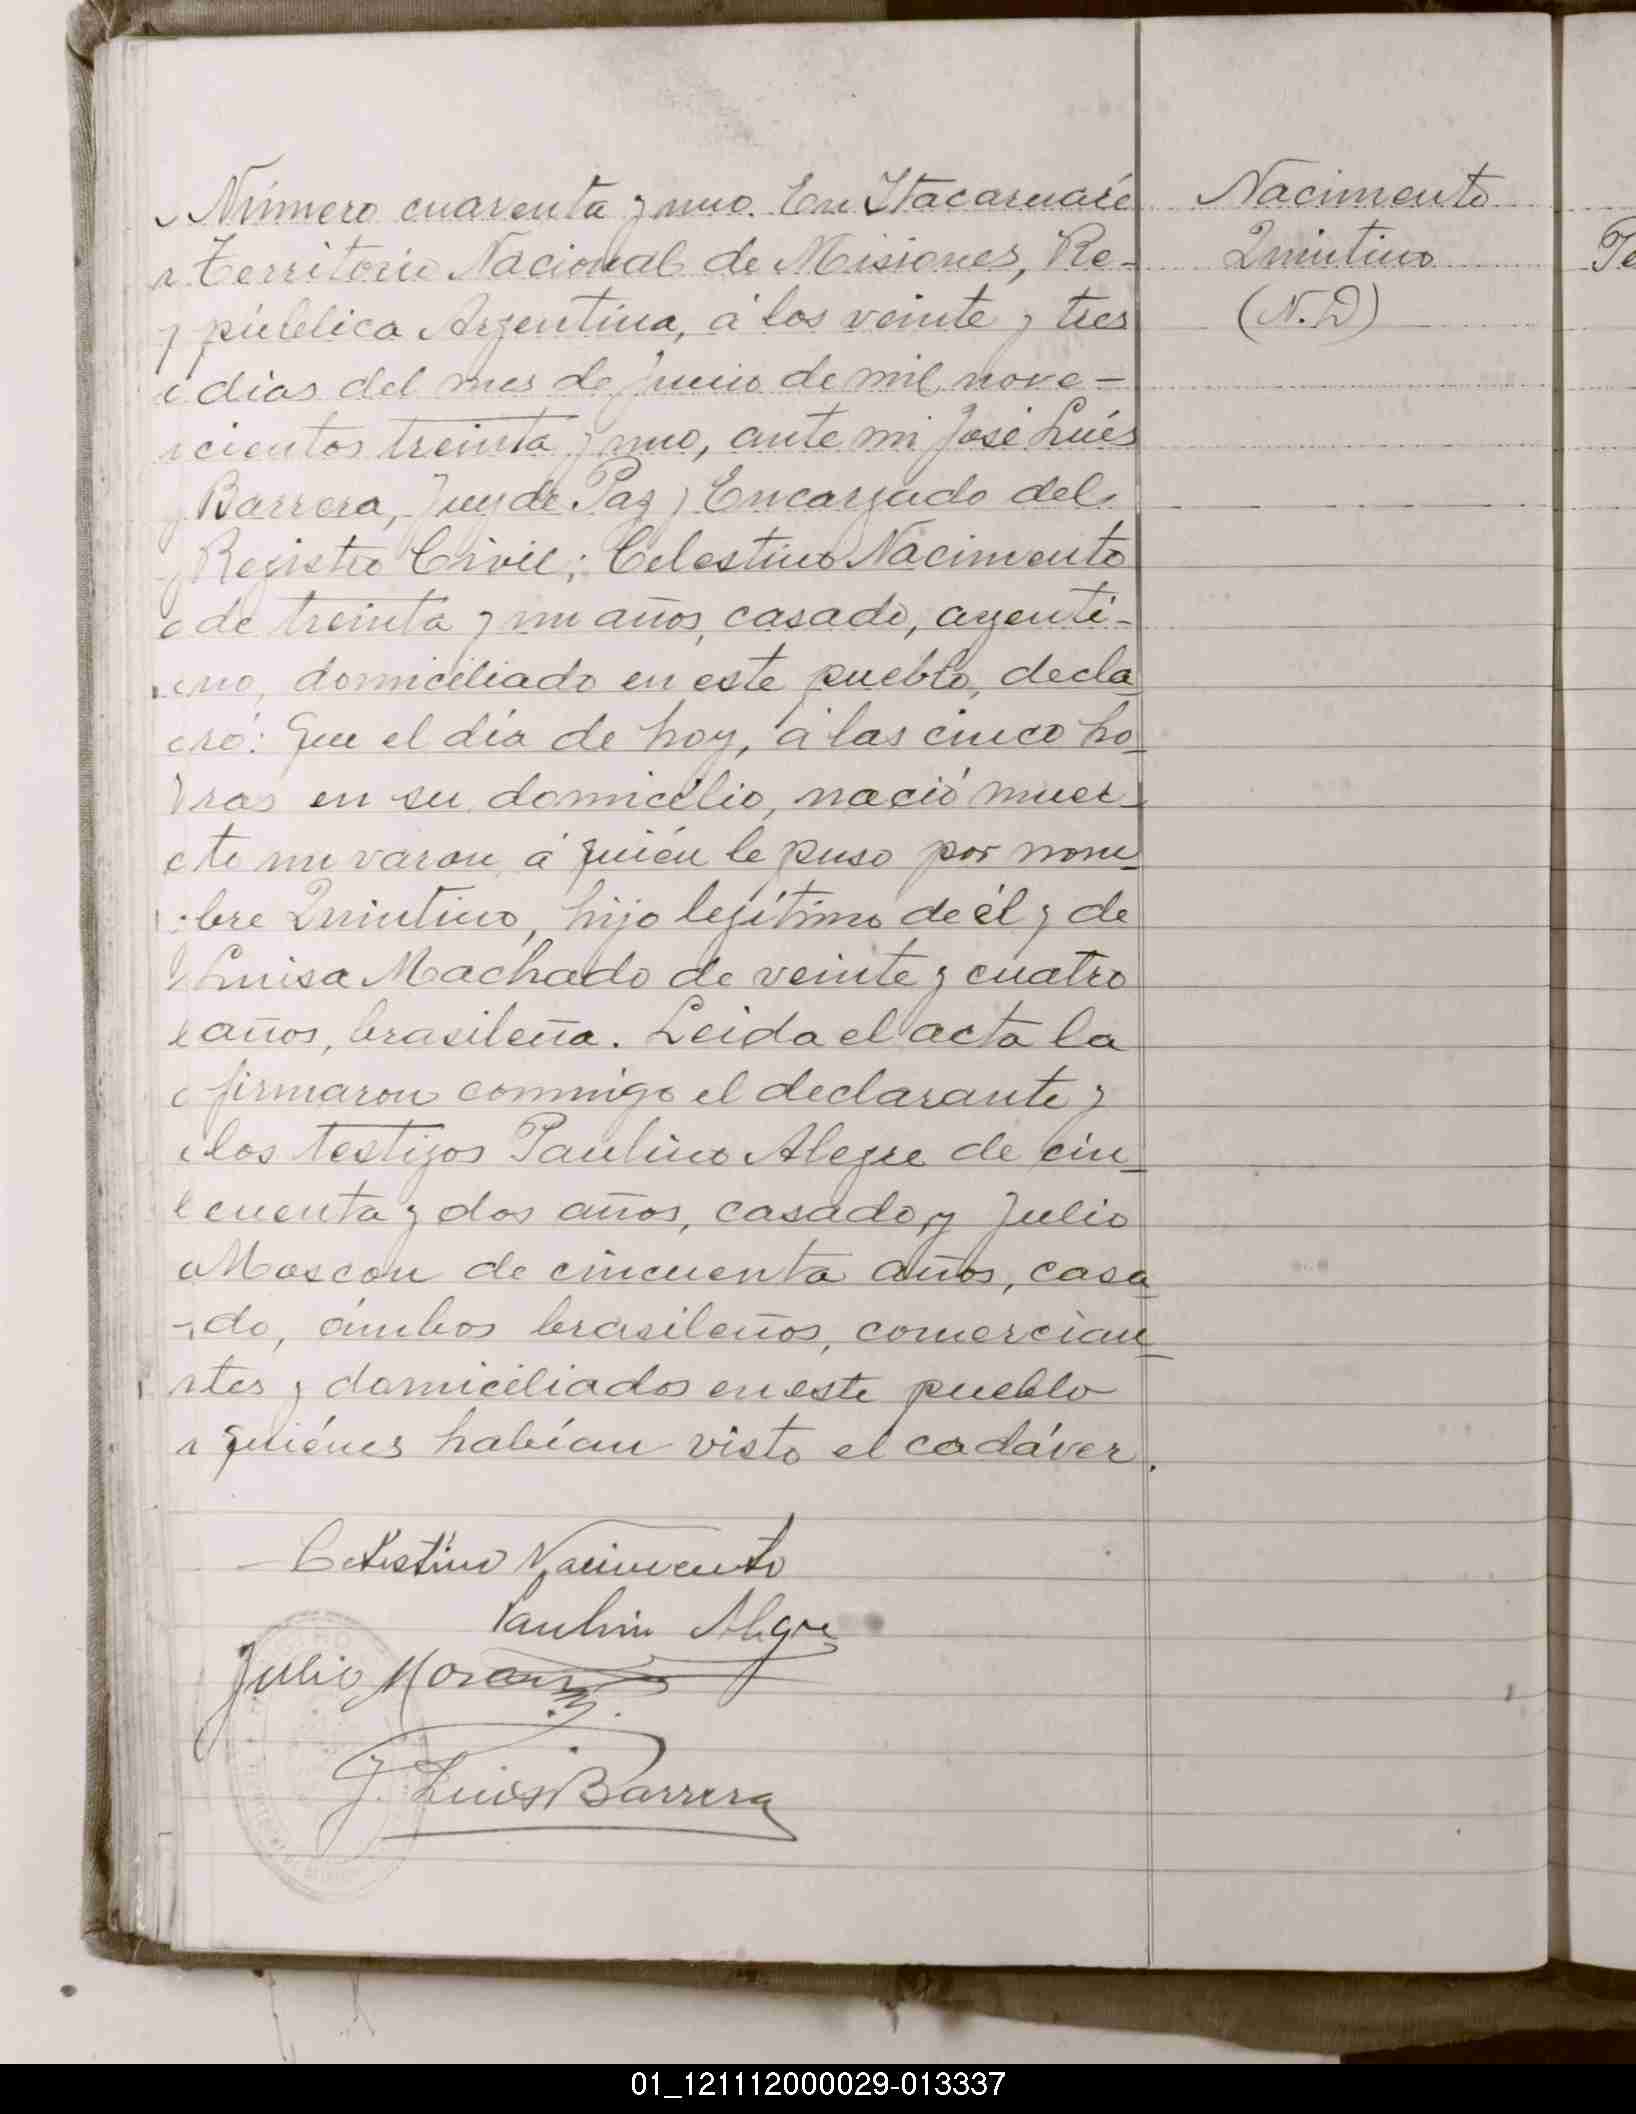 Número cuarenta y uno. En Itacaruaré
Territorio Nacional de Misiones, Re-
pública Argentina, á los veinte y tres
dias del mes de Junio de mil nove-
cientos treinta y uno, ante mi José Luis
Barrera, Juez de Paz y Encargado del
Registro Civil; Celestino Nacimento
de treinta y un años, casado, argenti-
no, domiciliado en este pueblo, decla
ró: Que el día de hoy, á las cinco ho-
ras en su domicilio, nació muer-
to un varon á quién le puso por nom-
bre Quintino, hijo legítimo de él y de
Luisa Machado de veinte y cuatro
años, brasileña. Leida el acta la
firmaron conmigo el declarante y
los testigos Paulino Alegre de cin-
cuenta y dos años, casado, y Julio
Moscon de cincuenta años, casa
do, ámbos brasileños, comercian-
tes y domiciliados en este pueblo
quiénes habían visto el cadáver.
Nacimento
Quintino
(N.D)
Celestino Nacimento
Paulino Alegre
Julio Moscon
J. Luis Barrera
01_121112000029-013337